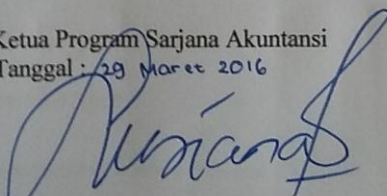 Ketua Program Sarjana Akuntansi
Tanggal : 29 Maret 2016